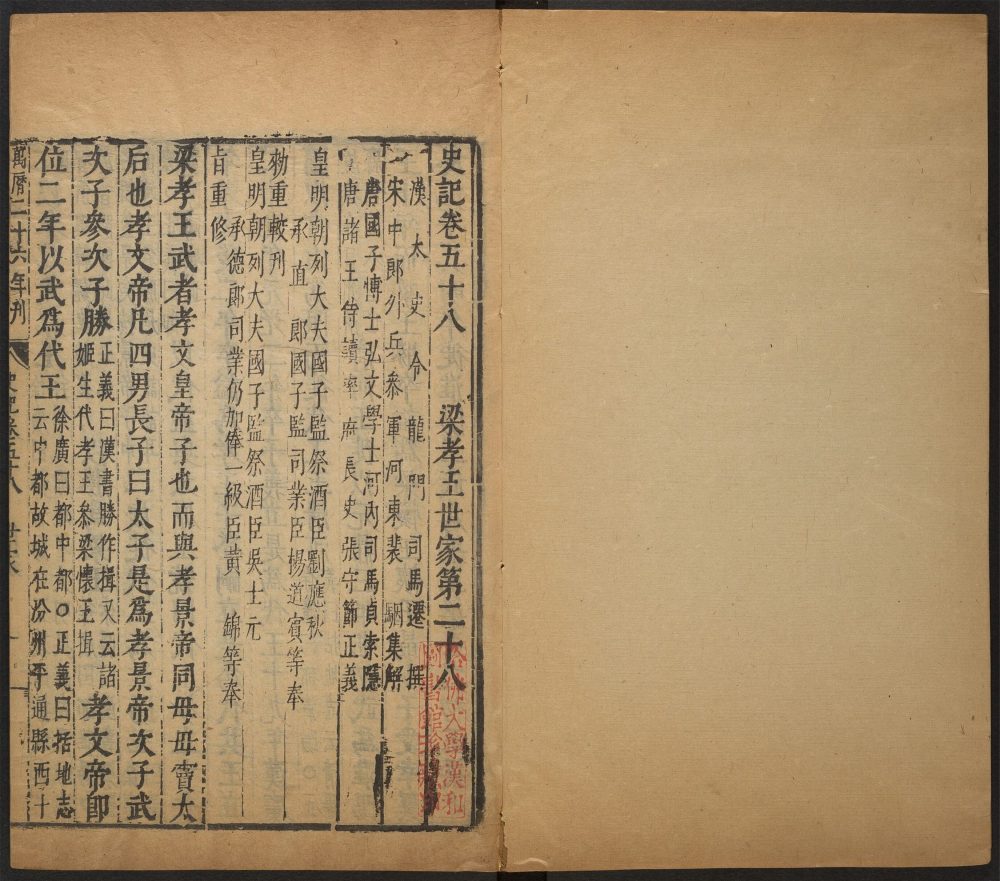 史記卷五十八 梁孝王世家第二十八
漢太史令龍門司馬遷撰
宋中郎外兵參軍河東裴駰集解
唐國子博士弘文學士河內司馬貞索隱
唐諸王侍讀率府長史張守節正義
皇明朝列大夫國子監祭酒臣劉應秋
承直郎國子監司業臣楊道賓等奉
勑重較刊
皇明朝列大夫國子監祭酒臣吳士元
承德郎司業仍加俸一級臣黃錦等奉
旨重修
梁孝王武者孝文皇帝子也而與孝景帝同母母竇太
后也孝文帝凡四男長子曰太子是爲孝景帝次子武
次子參次子勝正義曰漢書勝作揖又云諸姬生代孝王參梁懷王揖孝文帝卽
位二年以武爲代王徐廣曰都中都○正義曰括地志云中都故城在汾州平遙縣西十
萬曆二十六年刊 史記卷五十八 世家
哈佛大學漢和圖書館珍藏印